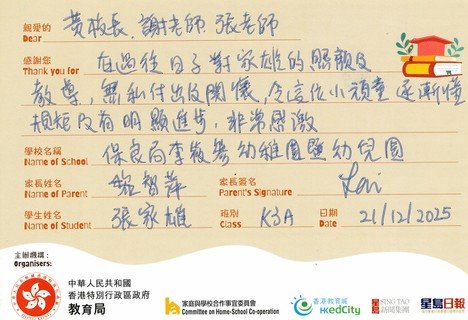 親愛的 黃校長, 謝老師, 張老師
Dear
感謝您 在過往日子對家雄的照顧及
Thank you for
教導, 無私付出及關懷, 令這位小頑童逐漸懂
規矩及有明顯進步, 非常感激
學校名稱 保良局李俊駒幼稚園暨幼兒園
Name of School
家長姓名 智萍 家長簽名 Lai
Name of Parent Parent's Signature
學生姓名 張家雄 班別 K3A 日期 21/12/2025
Name of Student Class Date
主辦機構:
Organisers:
中華人民共和國
香港特別行政區政府
教育局
家庭與學校合作事宜委員會
Committee on Home-School Co-operation
香港教育城
HKedCity
星島 SING TAO
新聞集團
星島日報